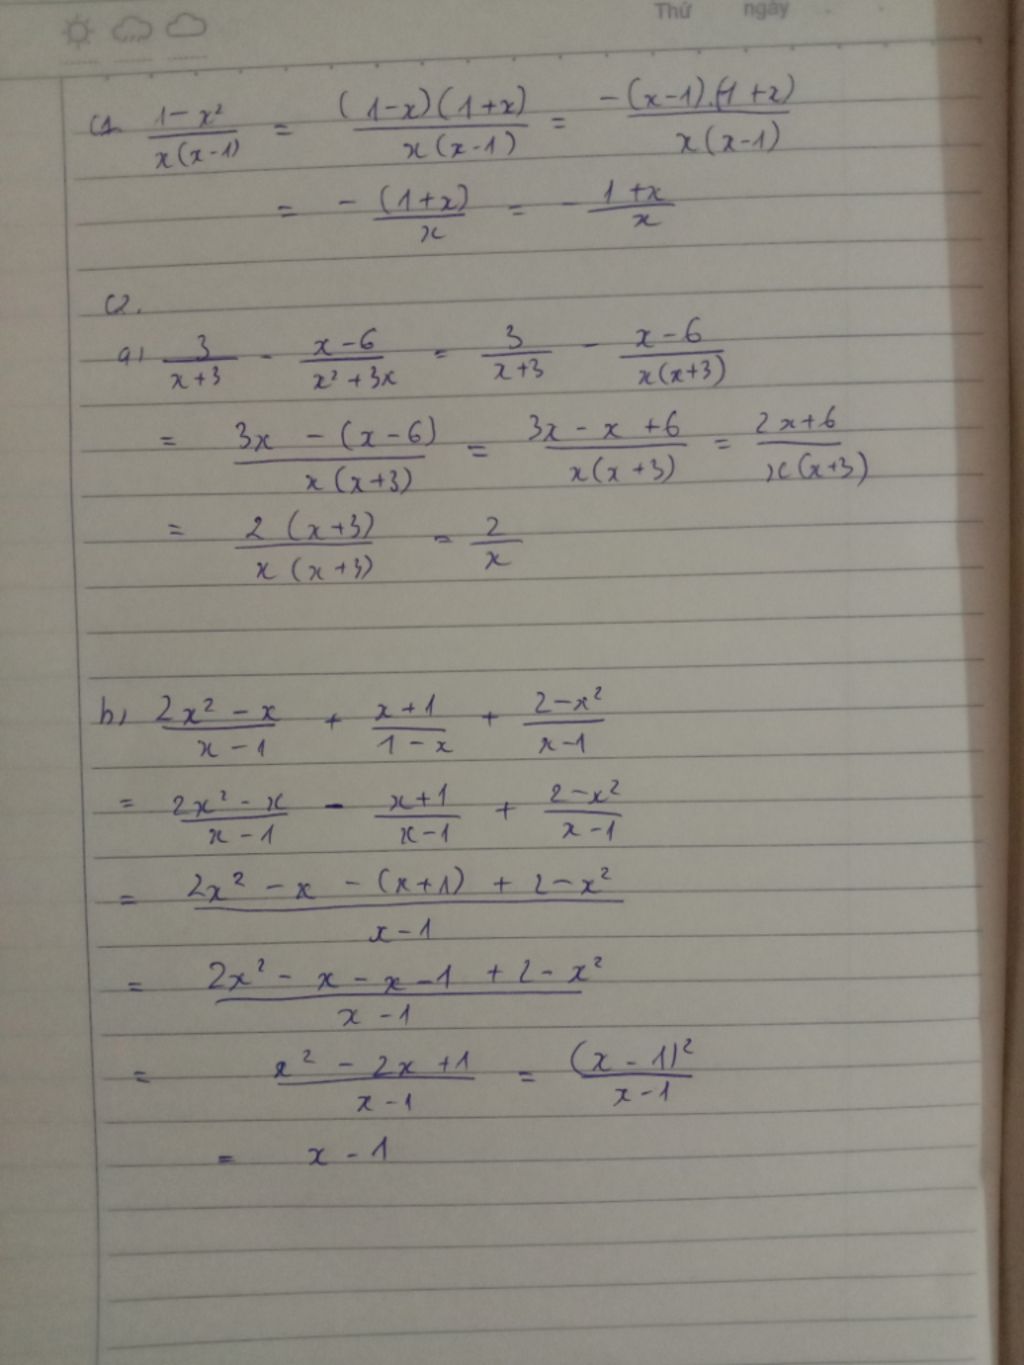 Thứ ngày
C1. \frac{1-x^2}{x(x-1)} = \frac{(1-x)(1+x)}{x(x-1)} = \frac{-(x-1).(1+x)}{x(x-1)}
= -\frac{(1+x)}{x} = -\frac{1+x}{x}
C2.
a, \frac{3}{x+3} - \frac{x-6}{x^2+3x} = \frac{3}{x+3} - \frac{x-6}{x(x+3)}
= \frac{3x-(x-6)}{x(x+3)} = \frac{3x-x+6}{x(x+3)} = \frac{2x+6}{x(x+3)}
= \frac{2(x+3)}{x(x+3)} = \frac{2}{x}
b, \frac{2x^2-x}{x-1} + \frac{x+1}{1-x} + \frac{2-x^2}{x-1}
= \frac{2x^2-x}{x-1} - \frac{x+1}{x-1} + \frac{2-x^2}{x-1}
= \frac{2x^2-x-(x+1)+2-x^2}{x-1}
= \frac{2x^2-x-x-1+2-x^2}{x-1}
= \frac{x^2-2x+1}{x-1} = \frac{(x-1)^2}{x-1}
= x-1